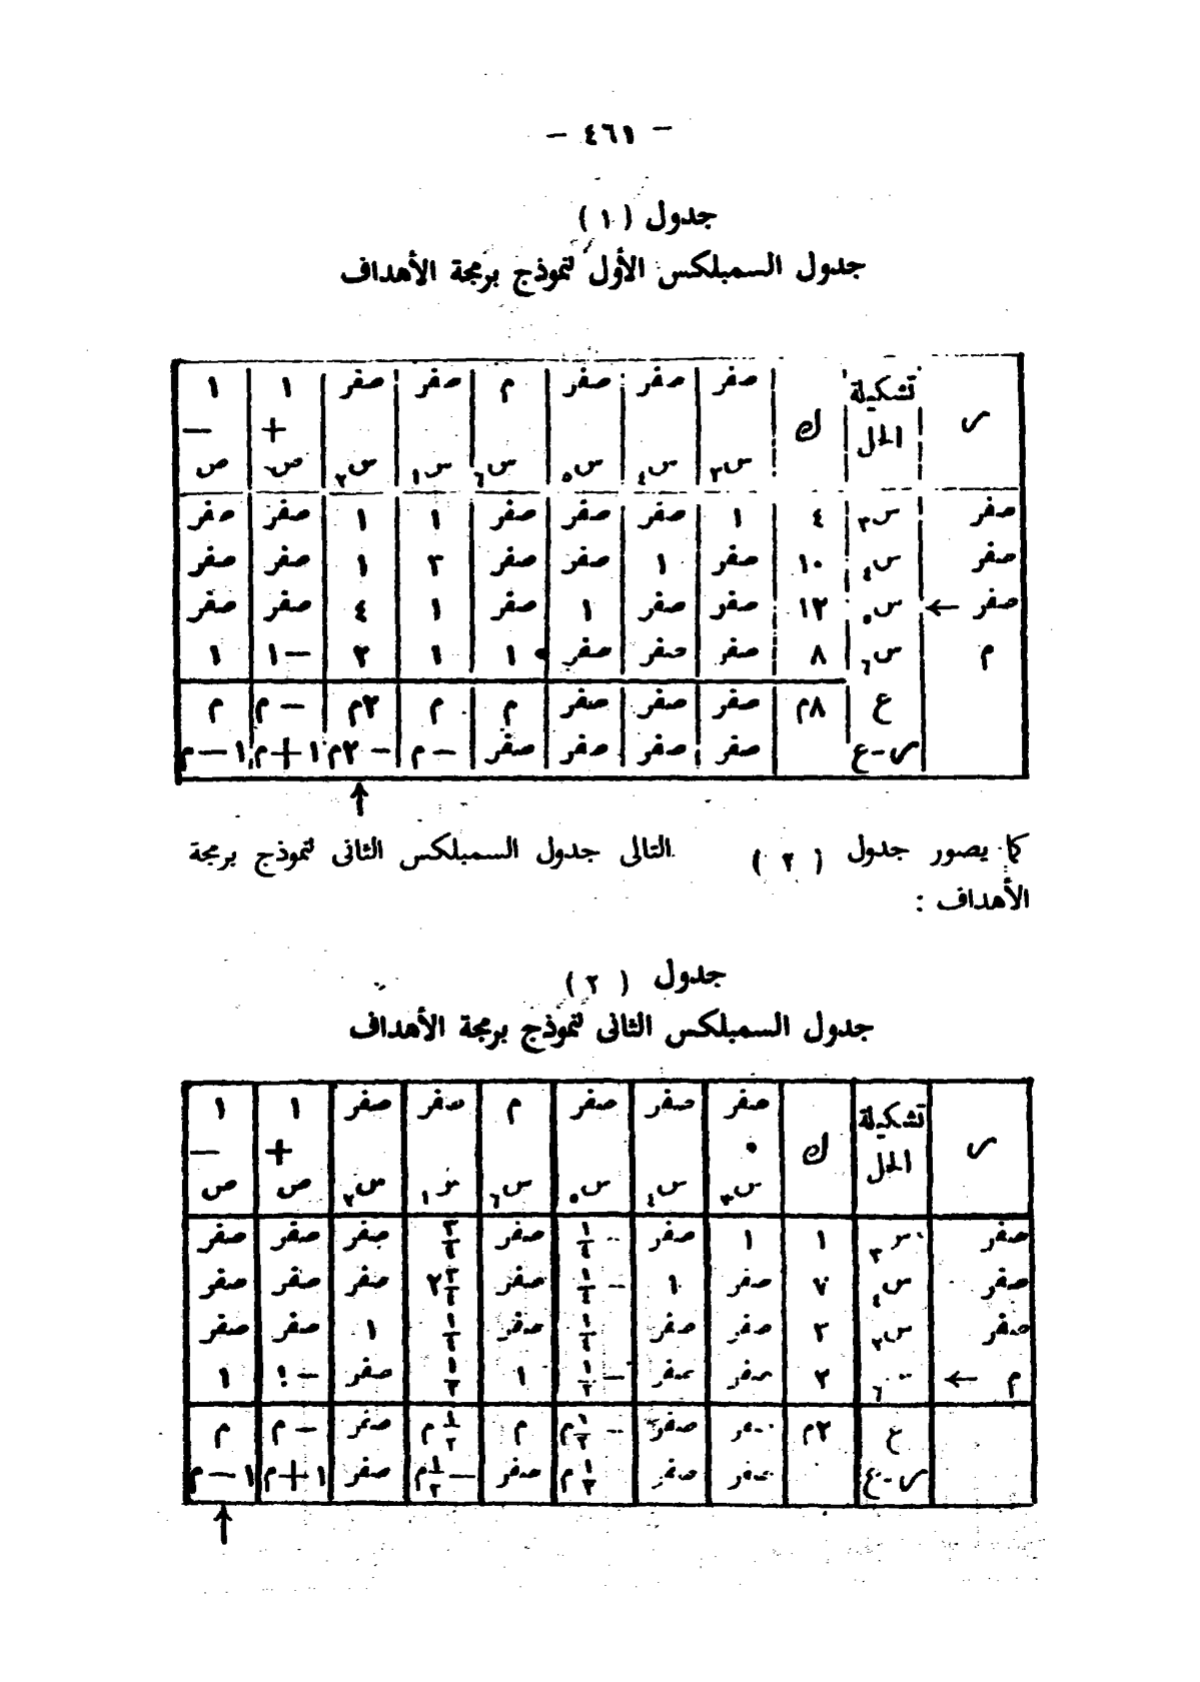 – ٤٦١ –
جدول ( ١ )
جدول السمبلكس الأول لنموذج برمجة الأهداف
ر تشكيلة الحل ك صفر س٣ صفر س٤ صفر س٥ م س٦ صفر س١ صفر س٢ ١ ص+ ١ ص–
صفر س٣ ٤ ١ صفر صفر صفر ١ ١ صفر صفر
صفر س٤ ١٠ صفر ١ صفر صفر ٣ ١ صفر صفر
صفر ← س٥ ١٢ صفر صفر ١ صفر ١ ٤ صفر صفر
م س٦ ٨ صفر صفر صفر ١ ١ ٢ –١ ١
ع ٨م صفر صفر صفر م م ٢م – م م
ر-ع صفر صفر صفر صفر – م – ٢م ١+م ١–م
↑
كما يصور جدول ( ٢ ) التالى جدول السمبلكس الثانى لنموذج برمجة
الأهداف :
جدول ( ٢ )
جدول السمبلكس الثانى لنموذج برمجة الأهداف
ر تشكيلة الحل ك صفر س٣ صفر س٤ صفر س٥ م س٦ صفر س١ صفر س٢ ١ ص+ ١ ص–
صفر س٣ ١ ١ صفر صفر صفر صفر صفر
صفر س٤ ٧ صفر ١ صفر صفر صفر صفر
صفر س٢ ٣ صفر صفر صفر ١ صفر صفر
م ← ٦ ٢ صفر صفر – ١/٢ ١ ١/٢ صفر –١ ١
ع ٢م صفر صفر – ١/٢م م ١/٢م صفر – م م
ر-ع صفر صفر ١/٢م صفر – ١/٢م صفر ١+م ١–م
↑